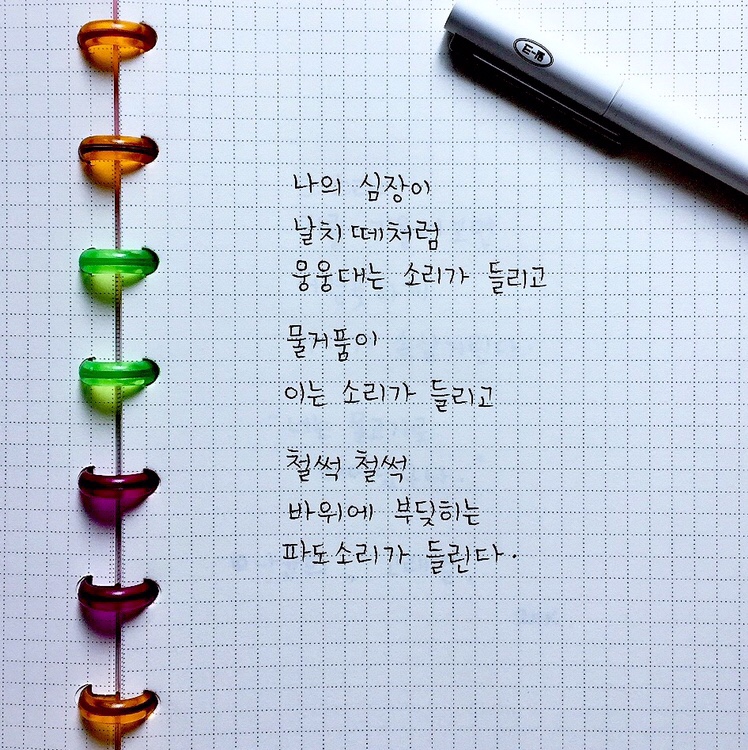 나의 심장이
날치 떼처럼
웅웅대는 소리가 들리고
물거품이
이는 소리가 들리고
철썩 철썩
바위에 부딪히는
파도소리가 들린다.